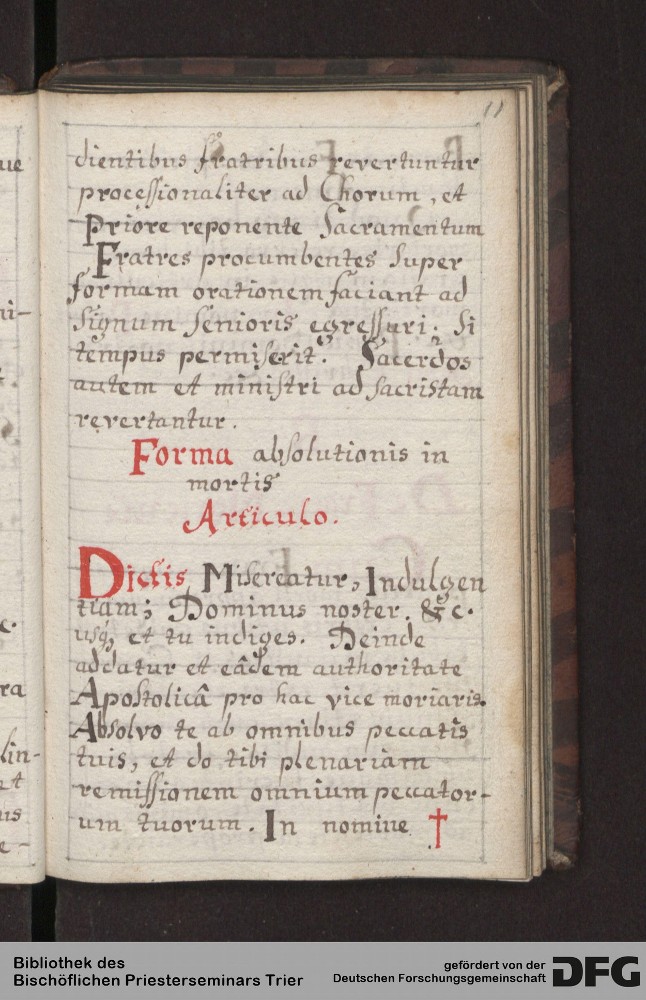 11
dientibus fratribus revertuntur
processionaliter ad Chorum, et
Priore reponente Sacramentum
Fratres procumbentes super
formam orationem faciant ad
signum senioris egressuri. si
tempus permiserit. Sacerdos
autem et ministri ad sacristam
revertantur.
Forma absolutionis in
mortis
Articulo.
Dictis Misereatur, Indulgen
tiam; Dominus noster. &c.
usq, et tu indiges. Deinde
addatur et eâdem authoritate
Apostolicâ pro hac vice moriaris.
Absolvo te ab omnibus peccatis
tuis, et do tibi plenariam
remissionem omnium peccator-
um tuorum. In nomine †
Bibliothek des
Bischöflichen Priesterseminars Trier
gefördert von der
Deutschen Forschungsgemeinschaft
DFG